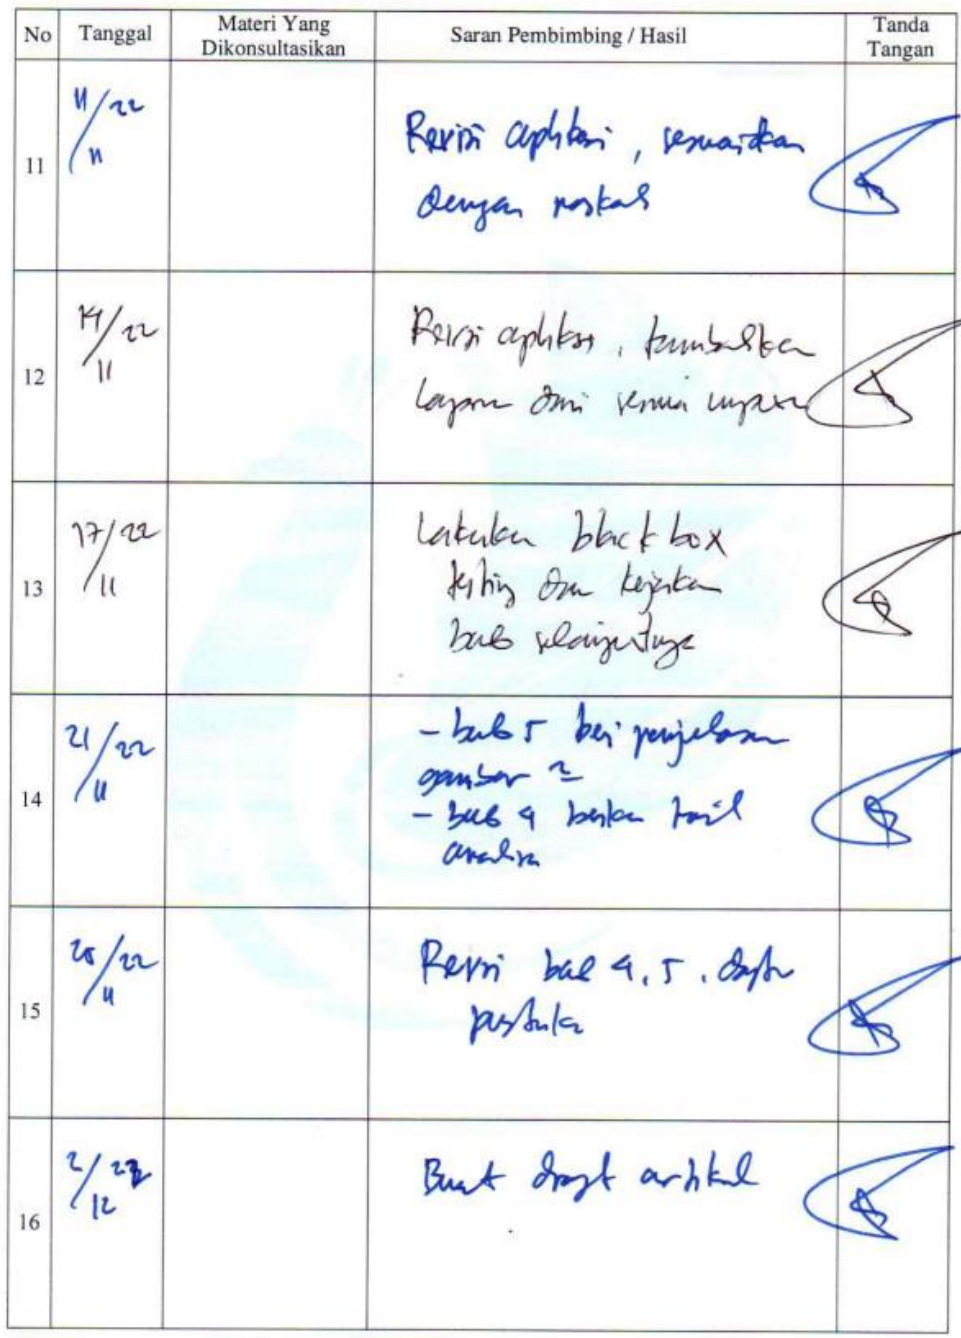 No Tanggal Materi Yang Dikonsultasikan Saran Pembimbing / Hasil Tanda Tangan
11 11/22 11
Revisi aplikasi, sesuaikan
dengan naskah
12 14/22 11
Revisi aplikasi, tambahkan
laporan dari semua
13 17/22 11
Lakukan black box
testing dan kerjakan
bab selanjutnya
14 21/22 11
- bab 5 beri penjelasan
gambar 2
- bab 4 berikan hasil
analisa
15 25/22 11
Revisi bab 4, 5, daftar
pustaka
16 2/22 12
Buat draft artikel